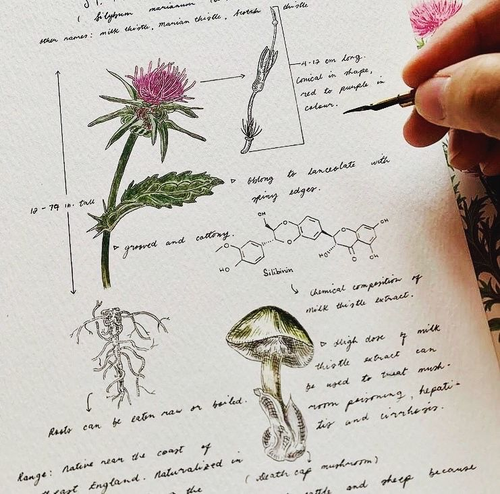 ( Silybum marianum
other names: milk thistle, Marian thistle, Scotch thistle
4-12 cm long.
Conical in shape,
red to purple in
colour.
oblong to lanceolate with
spiny edges.
12-79 in. tall
grooved and cottony.
OH
O
O
O
HO
O
OH
HO
O
OH
Silibinin
Chemical composition of
milk thistle extract.
High dose of milk
thistle extract can
be used to treat mush-
room poisoning, hepati-
tis and cirrhosis.
Roots can be eaten raw or boiled.
(death cap mushroom)
Range: Native near the coast of
east England. Naturalized in
the
cattle and sheep because